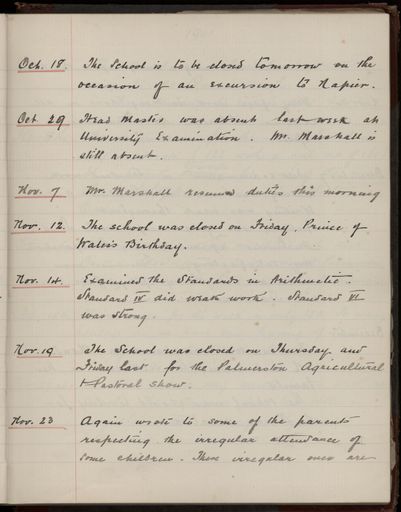 Oct. 18. The School is to be closed tomorrow on the
occasion of an excursion to Napier.
Oct 29 Head Master was absent last week at
University Examination. Mr. Marshall is
still absent.
Nov. 7 Mr. Marshall resumed duties this morning
Nov. 12. The school was closed on Friday, Prince of
Wales's Birthday.
Nov. 14. Examined the Standards in Arithmetic.
Standard IV did weak work. Standard VI
was strong.
Nov. 19 The School was closed on Thursday and
Friday last for the Palmerston Agricultural
& Pastoral Show.
Nov. 23 Again wrote to some of the parents
respecting the irregular attendance of
some children. These irregular ones are